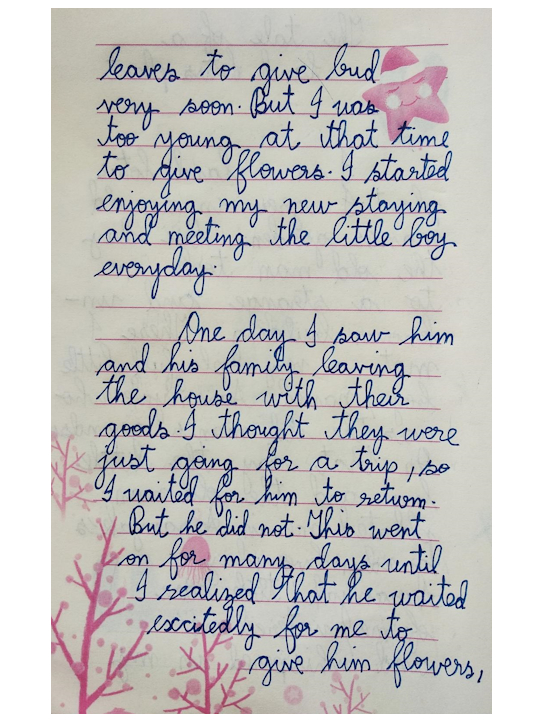 leaves to give bud
very soon. But I was
too young at that time
to give flowers. I started
enjoying my new staying
and meeting the little boy
everyday.
One day I saw him
and his family leaving
the house with their
goods. I thought they were
just going for a trip, so
I waited for him to return.
But he did not. This went
on for many days until
I realized that he waited
excitedly for me to
give him flowers,